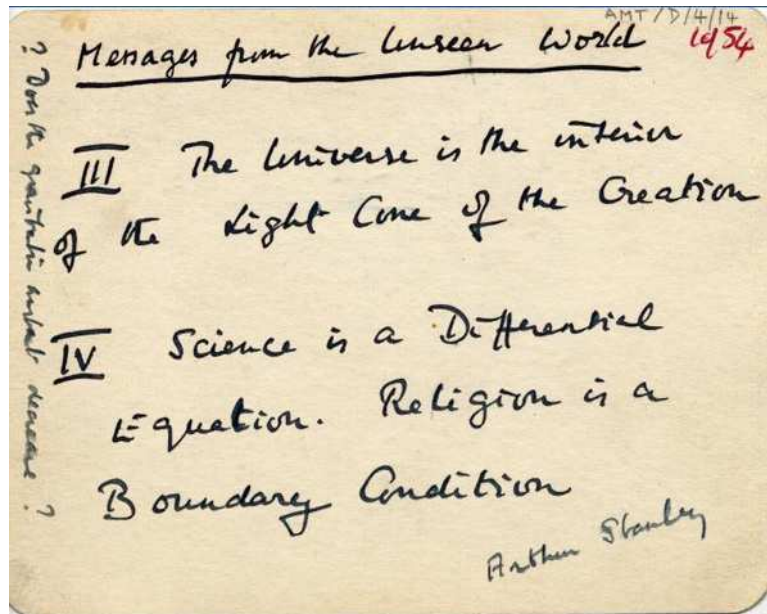 AMT/D/4/14
Messages from the Unseen World
1954
III The Universe is the interior
of the Light Cone of the Creation
IV Science is a Differential
Equation. Religion is a
Boundary Condition
Arthur Stanley
? Does the gravitation constant decrease ?